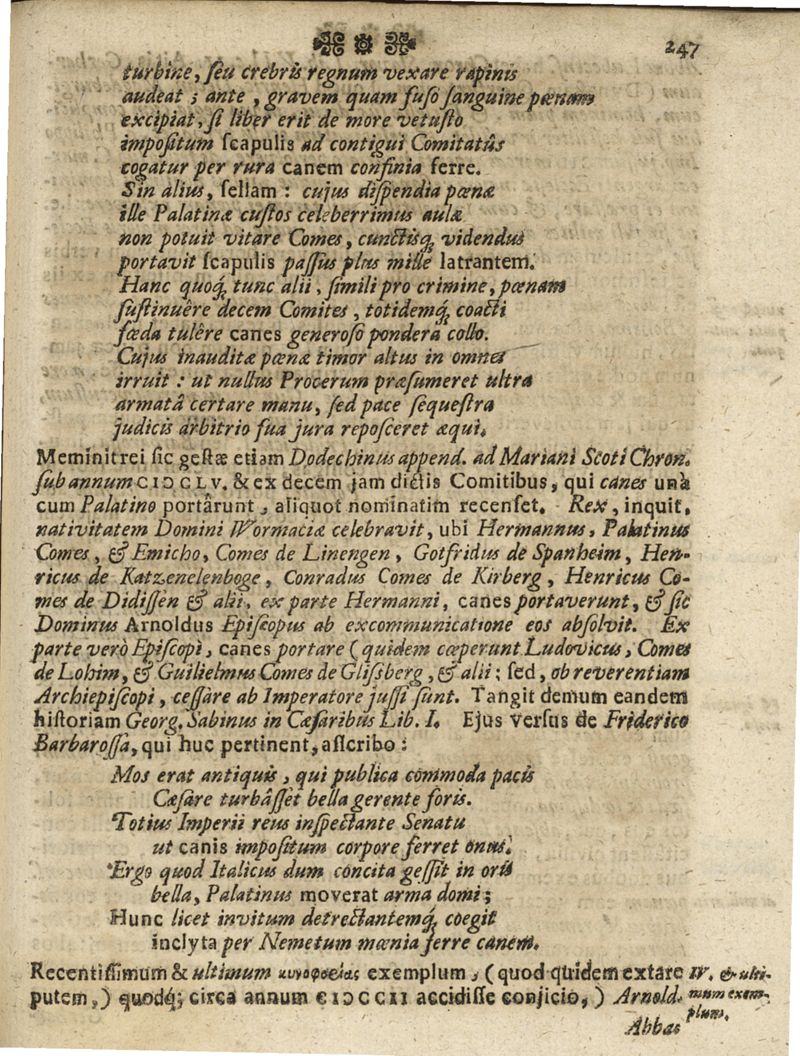 247
turbine, ſeu crebris regnum vexare rapinis
audeat ; ante , gravem quam fuſo ſanguine pœnam
excipiat, ſi liber erit de more vetuſto
impoſitum ſcapulis ad contigui Comitatûs
cogatur per rura canem confinia ferre.
Sin alius, ſellam : cujus diſpendia pœnæ
ille Palatinæ cuſtos celeberrimus aulæ
non potuit vitare Comes, cunctisq́, videndus
portavit ſcapulis paſſus plus mille latrantem.
Hanc quoq́, tunc alii, ſimili pro crimine, pœnam
ſuſtinuêre decem Comites, totidemq́, coacti
fœda tulêre canes generoſo pondera collo.
Cujus inauditæ pœnæ timor altus in omnes
irruit : ut nullus Procerum præſumeret ultra
armatâ certare manu, ſed pace ſequeſtra
judicis arbitrio ſua jura repoſceret æqui.
Meminit rei ſic geſtæ etiam Dodechinus append. ad Mariani Scoti Chron.
ſub annum CIƆCLV. & ex decem jam dictis Comitibus, qui canes unà
cum Palatino portârunt, aliquot nominatim recenſet. Rex, inquit,
nativitatem Domini Wormaciæ celebravit, ubi Hermannus, Palatinus
Comes, & Emicho, Comes de Linengen, Gotfridus de Spanheim, Hen-
ricus de Katzenelenboge, Conradus Comes de Kirberg, Henricus Co-
mes de Didiſſen & alii, ex parte Hermanni, canes portaverunt, & ſic
Dominus Arnoldus Epiſcopus ab excommunicatione eos abſolvit. Ex
parte verò Epiſcopi, canes portare (quidem cœperunt Ludovicus, Comes
de Lohim, & Guilielmus Comes de Gliſsberg, & alii; ſed, ob reverentiam
Archiepiſcopi, ceſſare ab Imperatore juſſi ſunt. Tangit demum eandem
hiſtoriam Georg. Sabinus in Cæſaribus Lib. I. Ejus verſus de Friderico
Barbaroſſa, qui huc pertinent, aſſcribo :
Mos erat antiquis, qui publica commoda pacis
Cæſare turbâſſet bella gerente foris.
Totius Imperii reus inſpectante Senatu
ut canis impoſitum corpore ferret onus.
Ergo quod Italicus dum concita geſſit in oris
bella, Palatinus moverat arma domi;
Hunc licet invitum detrectantemq́, coegit
inclyta per Nemetum mœnia ferre canem.
Recentiſſimum & ultimum κυνοφορείας exemplum, (quod quidem extare
putem,) quodq́; circa annum CIƆCCII accidiſſe conjicio,) Arnold.
IV. & ulti-
mum exem-
plum.
Abbas